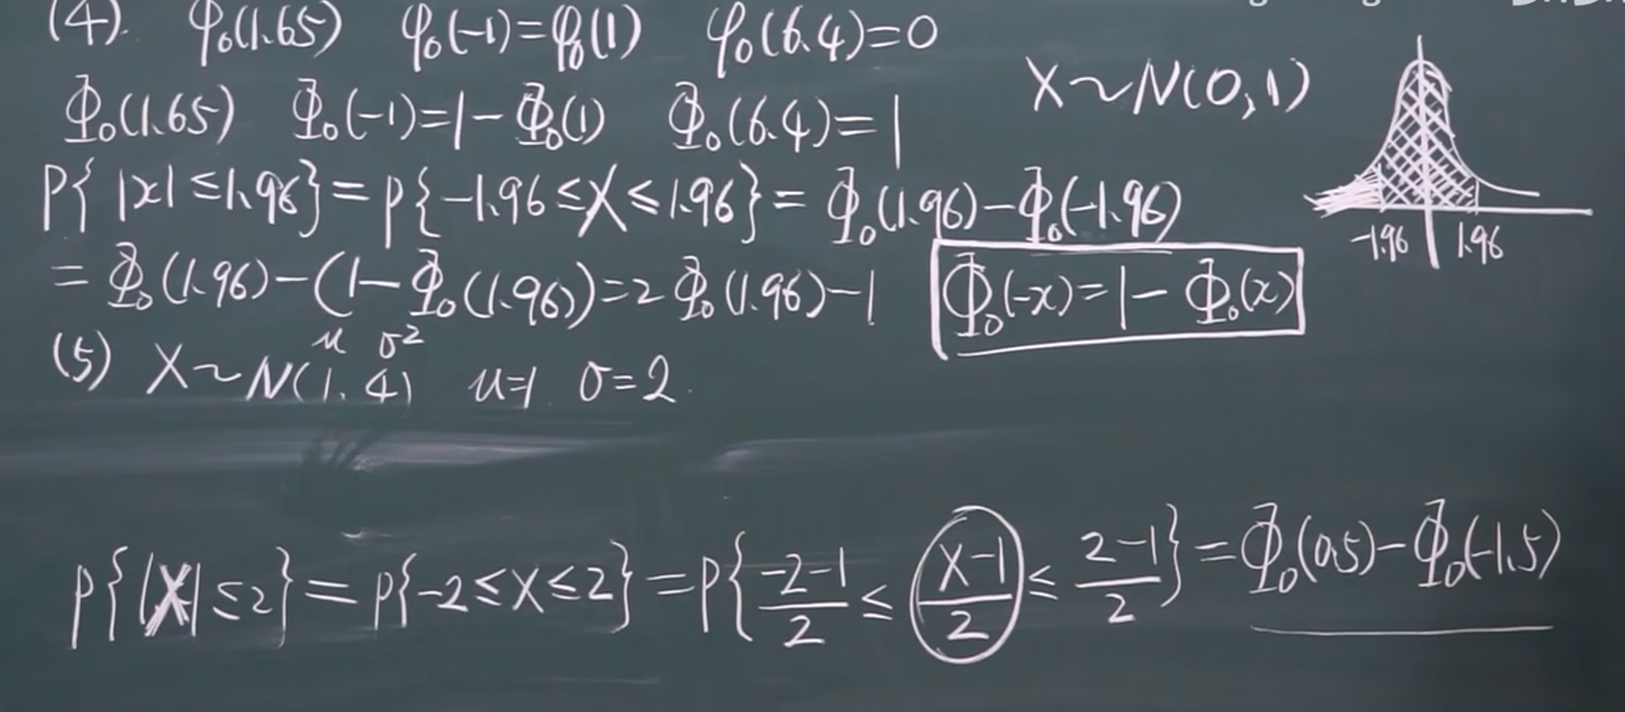 (4). φ₀(1.65) φ₀(-1)=φ₀(1) φ₀(6.4)=0
X~N(0,1)
Φ₀(1.65) Φ₀(-1)=1-Φ₀(1) Φ₀(6.4)=1
P{|x|≤1.96}=P{-1.96≤X≤1.96}=Φ₀(1.96)-Φ₀(-1.96)
-1.96 1.96
=Φ₀(1.96)-(1-Φ₀(1.96))=2Φ₀(1.96)-1
Φ₀(-x)=1-Φ₀(x)
μ σ²
(5) X~N(1.4) μ=1 σ=2.
P{|X|≤2}=P{-2≤X≤2}=P{(-2-1)/2≤(X-1)/2≤(2-1)/2}=Φ₀(0.5)-Φ₀(-1.5)